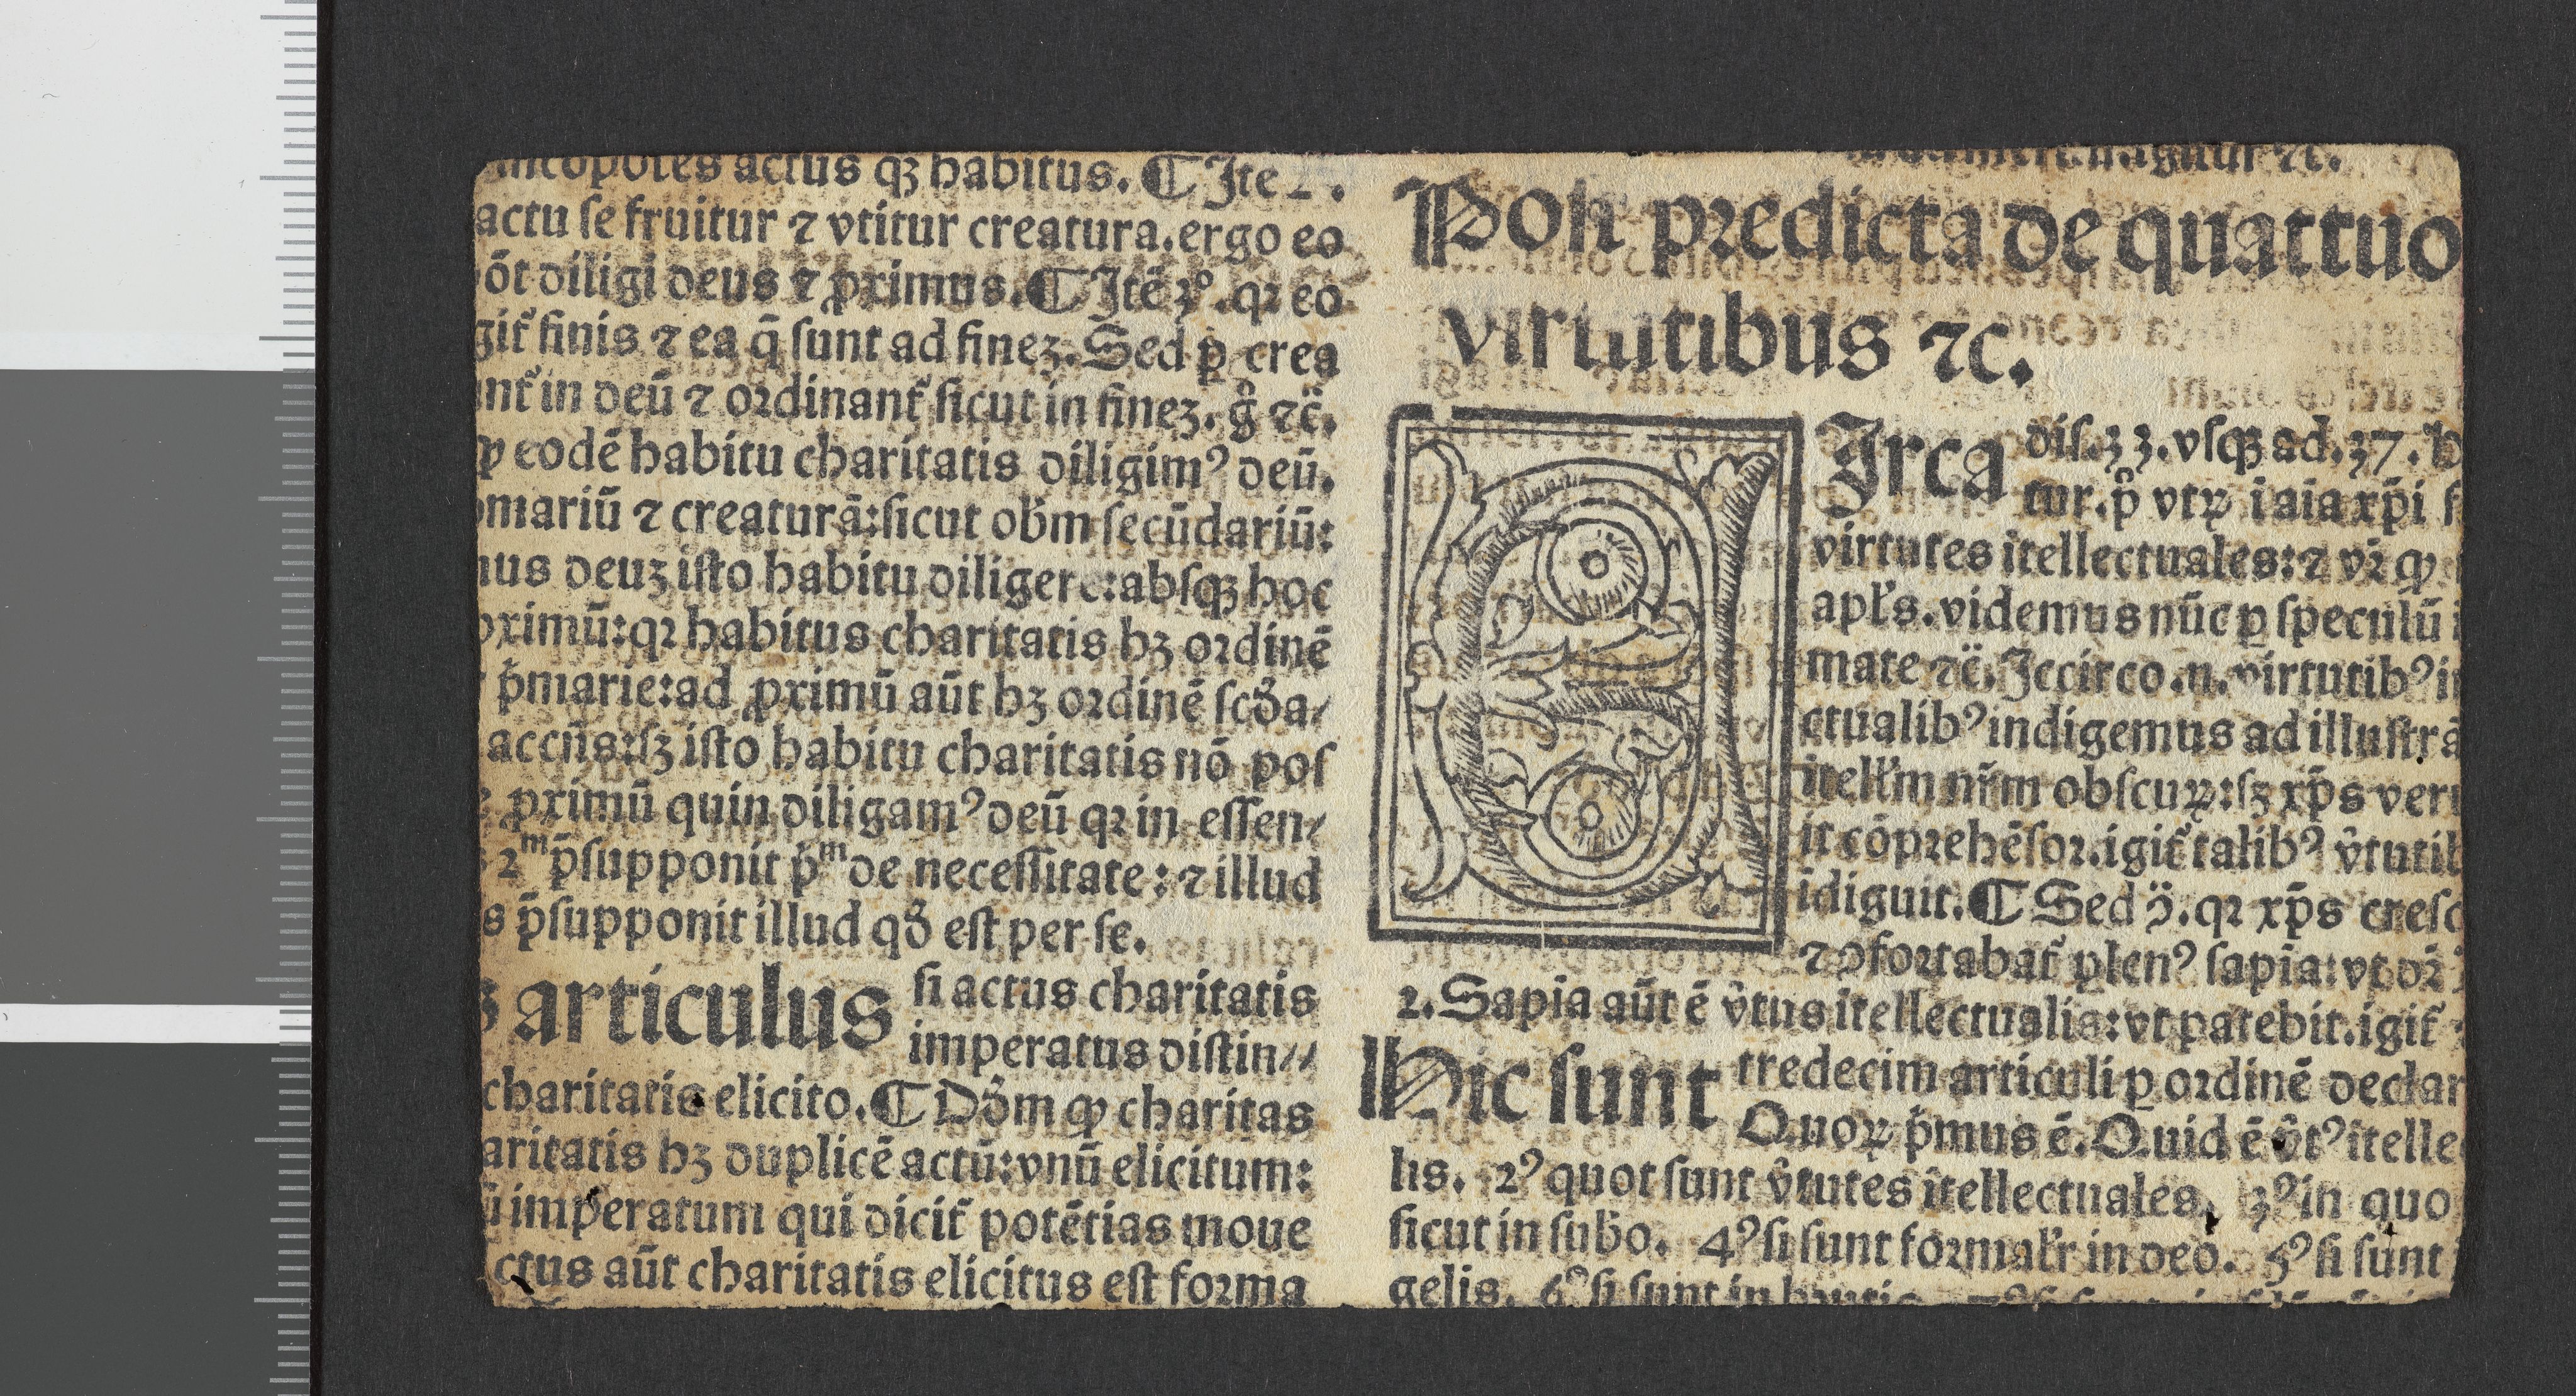 actus qꝫ habitus. ¶ Ite 2.
actu ſe fruitur ⁊ vtitur creatura. ergo eo
ōt diligi deus ⁊ ꝓximus. ¶ Itē 3º. qꝛ eo
git᷑ finis ⁊ ea q̄ ſunt ad finez. Sed p̱ crea
nt᷑ in deū ⁊ ordinant᷑ ſicut in finez. g̊ ⁊c̄.
ꝙ eodē habitu charitatis diligimꝰ deū.
mariū ⁊ creaturā: ſicut ob̄m ſecūdariū:
us deuz iſto habitu diligere: abſqꝫ hoc
ximū: qꝛ habitus charitatis hꝫ ordinē
p̄marie: ad ꝓximū aūt hꝫ ordinē ſcd̄a/
accn̄s: ſꝫ iſto habitu charitatis nō poſ
ꝓximū quin diligamꝰ deū qꝛ in eſſen/
2ᵐ p̄ſupponit p̄ᵐ de neceſſitate: ⁊ illud
s p̄ſupponit illud qd̄ eſt per ſe.
articulus ſi actus charitatis
imperatus diſtin//
charitatis elicito. ¶ Dd̄m ꝙ charitas
aritatis hꝫ duplicē actū: vnū elicitum:
ū imperatum qui dicit᷑ potētias moue
ctus aūt charitatis elicitus eſt forma
Poſt predicta de quattuo
virtutibus ⁊c.
C Irca diſ. 33. vſqꝫ ad. 37.
tur. p̊ vtꝝ ī aīa xp̄i ſ
virtutes ītellectuales: ⁊ vꝛ̄ ꝙ
apl̄s. videmus nūc ꝑ ſpeculū i
mate ⁊c̄. Iccirco .n. virtutibꝰ in
ctualibꝰ indigemus ad illuſtrā
ītell̄m nr̄m obſcuꝝ: ſꝫ xp̄s ver
it cōprehēſor. igit᷑ talibꝰ v̄tutib
īdiguit. ¶ Sed ꝯ̄. qꝛ xp̄s creſc
⁊ ꝯfortabat᷑ plenꝰ ſapīa: vt dꝛ̄
2. Sapīa aūt ē v̄tus ītellectualis: vt patebit. igit᷑
Hic ſunt tredecim articuli ꝑ ordinē declar
Quoꝝ p̄mus ē. Quid ē v̄tꝰ ītelle
lis. 2ꝰ quot ſunt v̄tutes ītellectuales. 3ꝰ in quo
ſicut in ſub̄o. 4ꝰ ſi ſunt formal̄r in deo. 5ꝰ ſi ſunt
gelis. 6ꝰ ſi ſunt in